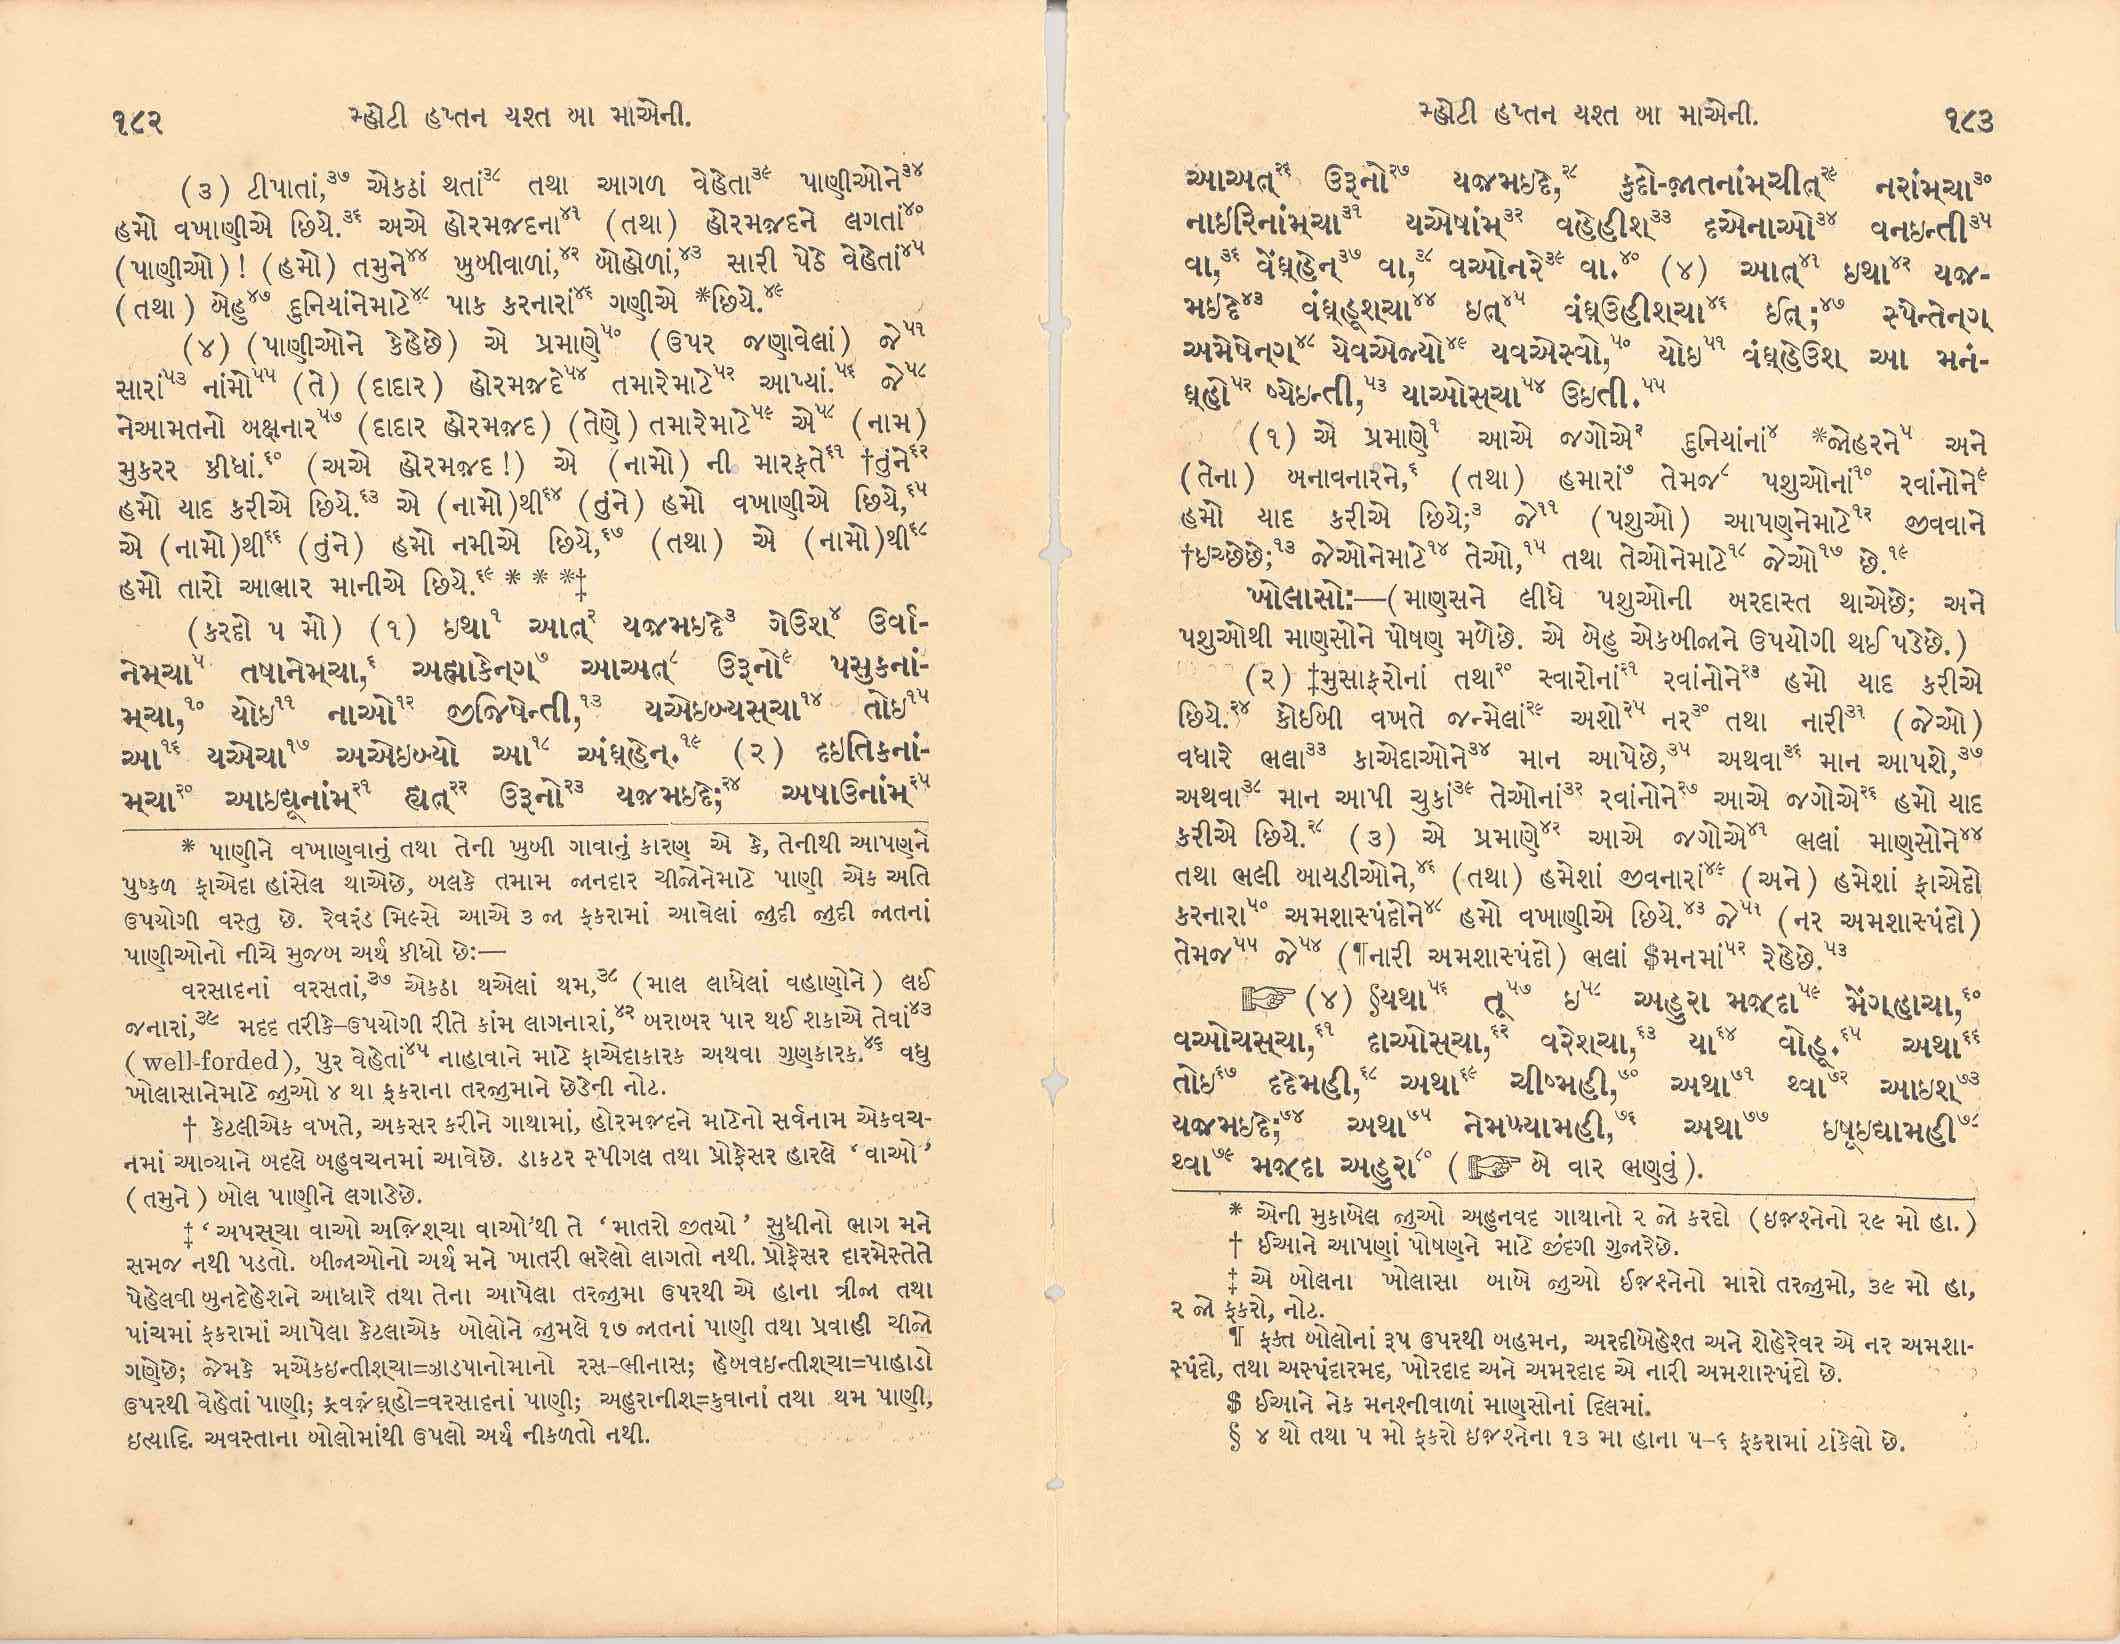 ૧૮૨ મ્હોટી હપ્તન યશ્ત બા માએની.
(૩) ટીપાતાં,૩૭ એકઠાં થતાં૩૮ તથા આગળ વેહેતા૩૯ પાણીઓને૩૪
હમો વખાણીએ છિયે.૩૬ અએ હોરમજ઼દના૪૧ (તથા) હોરમજ઼દને લગતાં૪૦
(પાણીઓ)! (હમો) તમુને૪૪ ખુબીવાળાં,૪૨ બોહોળાં,૪૩ સારી પેઠે વેહેતાં૪૫
(તથા) બેહુ૪૭ દુનિયાંનેમાટે૪૮ પાક કરનારાં૪૬ ગણીએ *છિયે.૪૯
(૪) (પાણીઓને કેહેછે) એ પ્રમાણે૫૦ (ઉપર જણાવેલાં) જે૫૧
સારાં૫૩ નાંમો૫૫ (તે) (દાદાર) હોરમજ઼દે૫૪ તમારેમાટે૫૨ આપ્યાં.૫૬ જે૫૮
નેઆમતનો બક્ષનાર૫૭ (દાદાર હોરમજ઼દ) (તેણે) તમારેમાટે૫૯ એ૫૮ (નામ)
મુકરર કીધાં.૬૦ (અએ હોરમજ઼દ!) એ (નામો) ની મારફતે૬૧ †તુંને૬૨
હમો યાદ કરીએ છિયે.૬૩ એ (નામો)થી૬૪ (તુંને) હમો વખાણીએ છિયે,૬૫
એ (નામો)થી૬૬ (તુંને) હમો નમીએ છિયે,૬૭ (તથા) એ (નામો)થી૬૮
હમો તારો આભાર માનીએ છિયે.૬૯ * * *‡
(કરદો ૫ મો) (૧) ઇથા૧ આત્૨ યજ઼મઇદે૩ ગેઉશ્૪ ઉર્વા-
નેમ્ચા૫ તષાનેમ્ચા,૬ અહ્માકેન્ગ્૭ આઅત્૮ ઉરૂનો૯ પસુકનાં-
મ્ચા,૧૦ યોઇ૧૧ નાઓ૧૨ જીજિષેન્તી,૧૩ યએઇબ્યસ્ચા૧૪ તોઇ૧૫
આ૧૬ યએચા૧૭ અએઇબ્યો આ૧૮ અંઘ્હેન્.૧૯ (૨) દઇતિકનાં-
મ્ચા૨૦ આઇદ્યૂનાંમ્૨૧ હ્યત્૨૨ ઉરૂનો૨૩ યજ઼મઇદે;૨૪ અષાઉનાંમ્૨૫
* પાણીને વખાણવાનું તથા તેની ખુબી ગાવાનું કારણ એ કે, તેનીથી આપણને
પુષ્કળ ફાએદા હાંસેલ થાએછે, બલકે તમામ જાનદાર ચીજોનેમાટે પાણી એક અતિ
ઉપયોગી વસ્તુ છે. રેવરંડ મિલ્સે આએ ૩ જા ફકરામાં આવેલાં જુદી જુદી જાતનાં
પાણીઓનો નીચે મુજબ અર્થ કીધો છેઃ—
વરસાદનાં વરસતાં,૩૭ એકઠા થએલાં થમ,૩૮ (માલ લાધેલાં વહાણોને) લઈ
જનારાં,૩૯ મદદ તરીકે–ઉપયોગી રીતે કાંમ લાગનારાં,૪૨ બરાબર પાર થઈ શકાએ તેવાં૪૩
(well-forded), પુર વેહેતાં૪૫ નાહાવાને માટે ફાએદાકારક અથવા ગુણકારક.૪૬ વધુ
ખોલાસાનેમાટે જુઓ ૪ થા ફકરાના તરજુમાને છેડેની નોટ.
† કેટલીએક વખતે, અકસર કરીને ગાથામાં, હોરમજ઼દને માટેનો સર્વનામ એકવચ-
નમાં આવ્યાને બદલે બહુવચનમાં આવેછે. ડાકટર સ્પીગલ તથા પ્રોફેસર હારલે ‘વાઓ’
(તમુને) બોલ પાણીને લગાડેછે.
‡ ‘અપસ્ચા વાઓ અજ઼િશ્ચા વાઓ’થી તે ‘માતરો જીતયો’ સુધીનો ભાગ મને
સમજ નથી પડતો. બીજાઓનો અર્થ મને ખાતરી ભરેલો લાગતો નથી. પ્રોફેસર દારમેસ્તેતે
પેહેલવી બુનદેહેશને આધારે તથા તેના આપેલા તરજુમા ઉપરથી એ હાના ત્રીજા તથા
પાંચમાં ફકરામાં આપેલા કેટલાએક બોલોને જુમલે ૧૭ જાતનાં પાણી તથા પ્રવાહી ચીજો
ગણેછે; જેમકે મએકઇન્તીશ્ચા=ઝાડપાનોમાનો રસ–ભીનાસ; હેબવઇન્તીશ્ચા=પાહાડો
ઉપરથી વેહેતાં પાણી; ફ્રવજ઼ંઘ્હો=વરસાદનાં પાણી; અહુરાનીશ્=કુવાનાં તથા થમ પાણી,
ઇત્યાદિ. અવસ્તાના બોલોમાંથી ઉપલો અર્થ નીકળતો નથી.
મ્હોટી હપ્તન યશ્ત બા માએની. ૧૮૩
આઅત્૨૬ ઉરૂનો૨૭ યજ઼મઇદે,૨૮ કુદો-જ઼ાતનાંમ્ચીત્૨૯ નરાંમ્ચા૩૦
નાઇરિનાંમ્ચા૩૧ યએષાંમ્૩૨ વહેહીશ્૩૩ દએનાઓ૩૪ વનઇન્તી૩૫
વા,૩૬ વેંઘ્હેન્૩૭ વા,૩૮ વઓનરે૩૯ વા.૪૦ (૪) આત્૪૧ ઇથા૪૨ યજ઼-
મઇદે૪૩ વંઘ્હૂશ્ચા૪૪ ઇત્૪૫ વંઘ્ઉહીશ્ચા૪૬ ઈત્;૪૭ સ્પેન્તેન્ગ્
અમેષેન્ગ્૪૮ યેવએજ્યો૪૯ યવએસ્વો,૫૦ યોઇ૫૧ વંઘ્હેઉશ આ મનં-
ઘ્હો૫૨ ષ્યેઇન્તી,૫૩ યાઓસ્ચા૫૪ ઉઇતી.૫૫
(૧) એ પ્રમાણે૧ આએ જગોએ૨ દુનિયાંનાં૪ *જોહરને૫ અને
(તેના) બનાવનારને,૬ (તથા) હમારાં૭ તેમજ૮ પશુઓનાં૧૦ રવાંનોને૯
હમો યાદ કરીએ છિયે;૩ જે૧૧ (પશુઓ) આપણનેમાટે૧૨ જીવવાને
†ઇચ્છેછે;૧૩ જેઓનેમાટે૧૪ તેઓ,૧૫ તથા તેઓનેમાટે૧૮ જેઓ૧૭ છે.૧૯
ખોલાસોઃ—(માણસને લીધે પશુઓની બરદાસ્ત થાએછે; અને
પશુઓથી માણસોને પોષણ મળેછે. એ બેહુ એકબીજાને ઉપયોગી થઈ પડેછે.)
(૨) ‡મુસાફરોનાં તથા૨૦ સ્વારોનાં૨૧ રવાંનોને૨૩ હમો યાદ કરીએ
છિયે.૨૪ કોઈબી વખતે જન્મેલાં૨૯ અશો૨૫ નર૩૦ તથા નારી૩૧ (જેઓ)
વધારે ભલા૩૩ કાએદાઓને૩૪ માન આપેછે,૩૫ અથવા૩૬ માન આપશે,૩૭
અથવા૩૮ માન આપી ચુકાં૩૯ તેઓનાં૩૨ રવાંનોને૨૭ આએ જગોએ૨૬ હમો યાદ
કરીએ છિયે.૨૮ (૩) એ પ્રમાણે૪૨ આએ જગોએ૪૧ ભલાં માણસોને૪૪
તથા ભલી બાયડીઓને,૪૬ (તથા) હમેશાં જીવનારાં૪૯ (અને) હમેશાં ફાએદો
કરનારા૫૦ અમશાસ્પંદોને૪૮ હમો વખાણીએ છિયે.૪૩ જે૫૧ (નર અમશાસ્પંદો)
તેમજ૫૫ જે૫૪ (¶નારી અમશાસ્પંદો) ભલાં $મનમાં૫૨ રેહેછે.૫૩
☞ (૪) §યથા૫૬ તૂ૫૭ ઇ૫૮ અહુરા મજ઼્દા૫૯ મેંગ્હાચા,૬૦
વઓચસ્ચા,૬૧ દાઓસ્ચા,૬૨ વરેશ્ચા,૬૩ યા૬૪ વોહૂ.૬૫ અથા૬૬
તોઇ૬૭ દદેમહી,૬૮ અથા૬૯ ચીષ્મહી,૭૦ અથા૭૧ થ્વા૭૨ આઇશ્૭૩
યજ઼મઇદે;૭૪ અથા૭૫ નેમખ્યામહી,૭૬ અથા૭૭ ઇષૂઇદ્યામહી૭૮
થ્વા૭૯ મજ઼્દા અહુરા૮૦ (☞ બે વાર ભણવું).
* એની મુકાબેલ જુઓ અહુનવદ ગાથાનો ૨ જો કરદો (ઇજ઼શ્નેનો ૨૯ મો હા.)
† ઈઆને આપણાં પોષણને માટે જીંદગી ગુજારેછે.
‡ એ બોલના ખોલાસા બાબે જુઓ ઈજ઼શ્નેનો મારો તરજુમો, ૩૯ મો હા,
૨ જો ફકરો, નોટ.
¶ ફક્ત બોલોનાં રૂપ ઉપરથી બહમન, અરદીબેહેશ્ત અને શેહેરેવર એ નર અમશા-
સ્પંદો, તથા અસ્પંદારમદ, ખોરદાદ અને અમરદાદ એ નારી અમશાસ્પંદો છે.
$ ઈઆને નેક મનશ્નીવાળાં માણસોનાં દિલમાં.
§ ૪ થો તથા ૫ મો ફકરો ઇજ઼શ્નેના ૧૩ મા હાના ૫–૬ ફકરામાં ટાંકેલો છે.